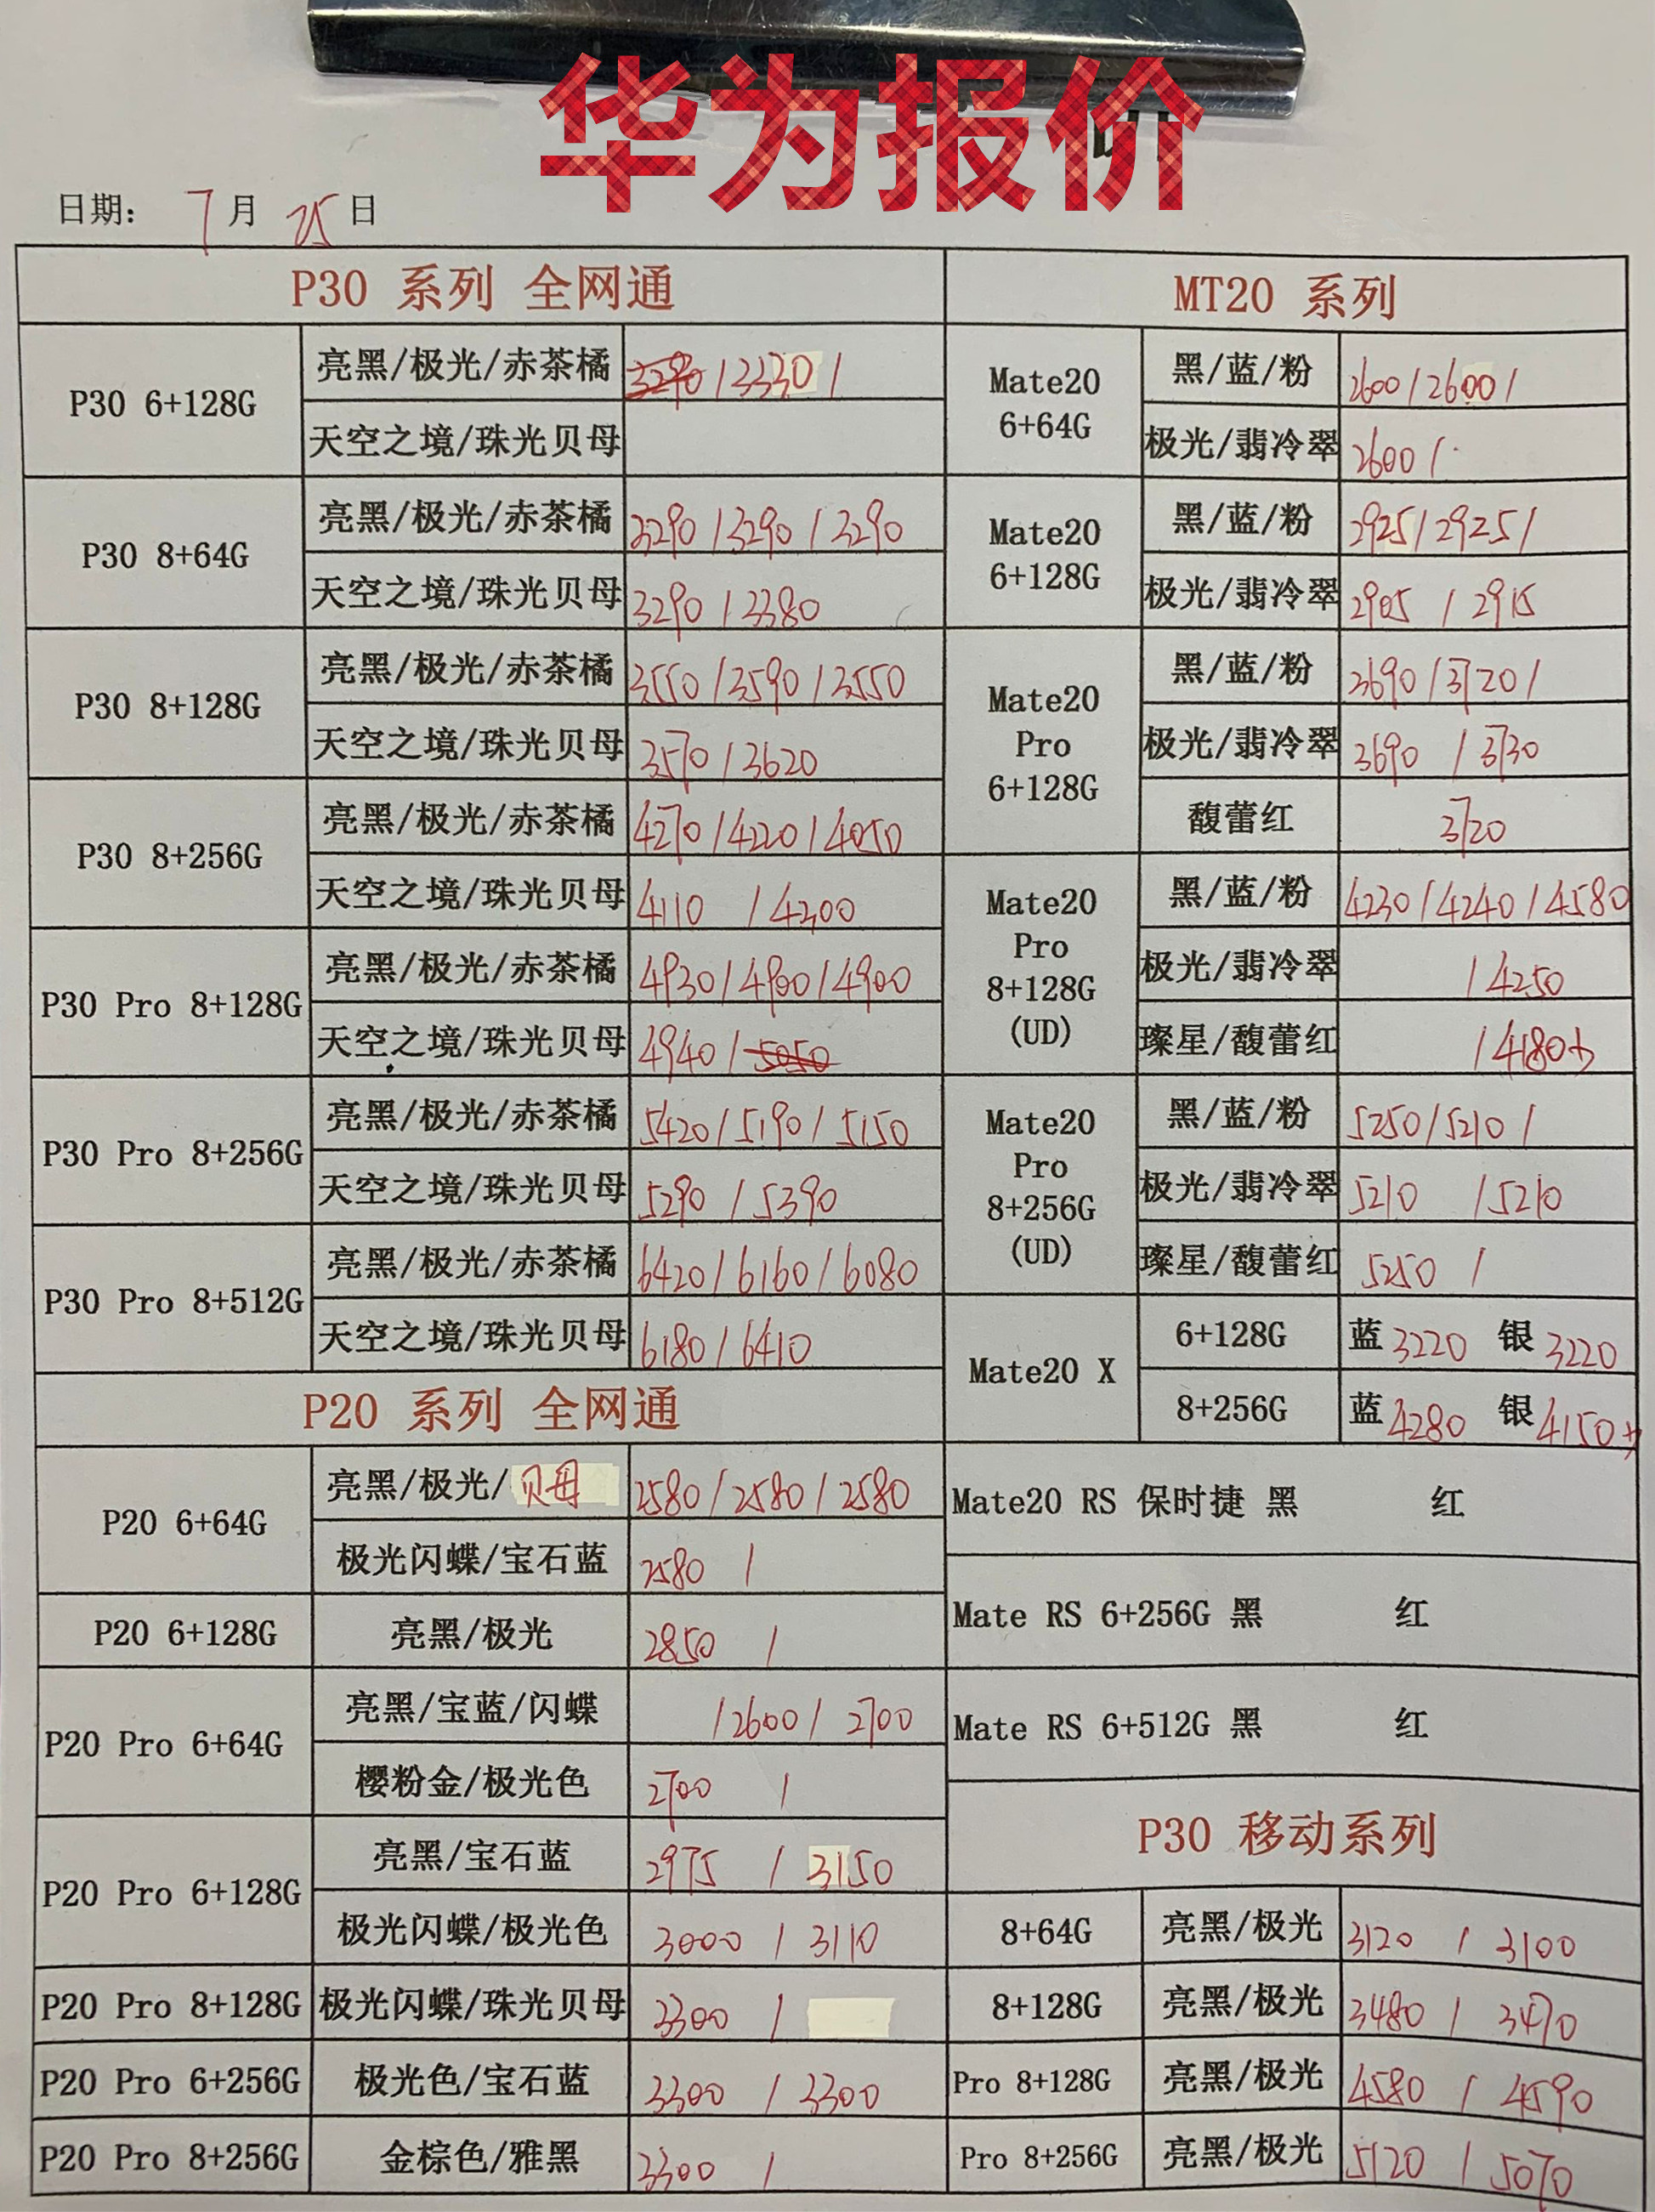 华为报价
日期: 7月25日
P30 系列 全网通
P30 6+128G
亮黑/极光/赤茶橘 3290/3330/
天空之境/珠光贝母
P30 8+64G
亮黑/极光/赤茶橘 3290/3290/3290
天空之境/珠光贝母 3290/3380
P30 8+128G
亮黑/极光/赤茶橘 3550/3590/3550
天空之境/珠光贝母 3570/3620
P30 8+256G
亮黑/极光/赤茶橘 4270/4220/4050
天空之境/珠光贝母 4110 /4200
P30 Pro 8+128G
亮黑/极光/赤茶橘 4930/4900/4900
天空之境/珠光贝母 4940/5050
P30 Pro 8+256G
亮黑/极光/赤茶橘 5420/5190/5150
天空之境/珠光贝母 5290 /5390
P30 Pro 8+512G
亮黑/极光/赤茶橘 6420/6160/6080
天空之境/珠光贝母 6180/6410
P20 系列 全网通
P20 6+64G
亮黑/极光/贝母 2580/2580/2580
极光闪蝶/宝石蓝 2580 /
P20 6+128G 亮黑/极光 2850 /
P20 Pro 6+64G
亮黑/宝蓝/闪蝶 /2600/ 2700
樱粉金/极光色 2700 /
P20 Pro 6+128G
亮黑/宝石蓝 2975 / 3150
极光闪蝶/极光色 3000 / 3110
P20 Pro 8+128G 极光闪蝶/珠光贝母 3300 /
P20 Pro 6+256G 极光色/宝石蓝 3300 / 3300
P20 Pro 8+256G 金棕色/雅黑 3300 /
MT20 系列
Mate20
6+64G
黑/蓝/粉 2600/2600/
极光/翡冷翠 2600/
Mate20
6+128G
黑/蓝/粉 2925/2925/
极光/翡冷翠 2905 / 2915
Mate20
Pro
6+128G
黑/蓝/粉 3690/3720/
极光/翡冷翠 3690 /3730
馥蕾红 3720
Mate20
Pro
8+128G
(UD)
黑/蓝/粉 4230/4240/4580
极光/翡冷翠 /4250
璨星/馥蕾红 /4180
Mate20
Pro
8+256G
(UD)
黑/蓝/粉 5250/5210/
极光/翡冷翠 5210 /5210
璨星/馥蕾红 5250 /
Mate20 X
6+128G 蓝 3220 银 3220
8+256G 蓝 4280 银 4150
Mate20 RS 保时捷 黑 红
Mate RS 6+256G 黑 红
Mate RS 6+512G 黑 红
P30 移动系列
8+64G 亮黑/极光 3120 / 3100
8+128G 亮黑/极光 3480 / 3470
Pro 8+128G 亮黑/极光 4580 / 4590
Pro 8+256G 亮黑/极光 5120 / 5070